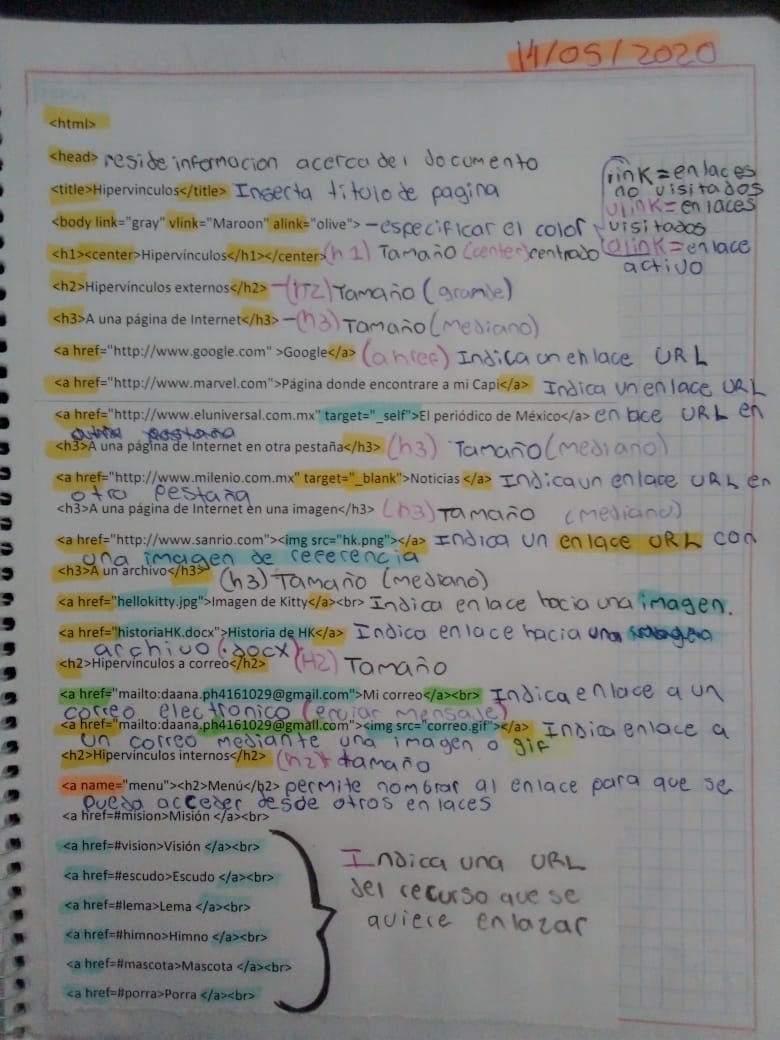 14/05/2020
<html>
<head> reside informacion acerca del documento
<title>Hipervinculos</title> Inserta titulo de pagina
<body link="gray" vlink="Maroon" alink="olive"> -especificar el color
link=enlaces
no visitados
vlink=enlaces
visitados
alink=enlace
activo
<h1><center>Hipervinculos</h1></center> (h1) Tamaño (center) centrado
<h2>Hipervinculos externos</h2> -(H2) Tamaño (grande)
<h3>A una página de Internet</h3> -(h3) Tamaño (mediano)
<a href="http://www.google.com" >Google</a> (a href) Indica un enlace URL
<a href="http://www.marvel.com">Página donde encontrare a mi Capi</a> Indica un enlace URL
<a href="http://www.eluniversal.com.mx" target="_self">El periódico de México</a> enlace URL en
<h3>A una página de Internet en otra pestaña</h3> (h3) Tamaño (mediano)
<a href="http://www.milenio.com.mx" target="_blank">Noticias </a> Indica un enlace URL en
otro pestaña
<h3>A una página de Internet en una imagen</h3> (h3) Tamaño (mediano)
<a href="http://www.sanrio.com"><img src="hk.png"></a> Indica un enlace URL con
una imagen de referencia
<h3>A un archivo</h3> (h3) Tamaño (mediano)
<a href="hellokitty.jpg">Imagen de Kitty</a><br> Indica enlace hacia una imagen.
<a href="historiaHK.docx">Historia de HK</a> Indica enlace hacia una
archivo (.docx)
<h2>Hipervínculos a correo</h2> (H2) Tamaño
<a href="mailto:daana.ph4161029@gmail.com">Mi correo</a><br> Indica enlace a un
correo electronico (enviar mensaje)
<a href="mailto:daana.ph4161029@gmail.com"><img src="correo.gif"></a> Indica enlace a
un correo mediante una imagen o gif
<h2>Hipervínculos internos</h2> (h2) tamaño
<a name="menu"><h2>Menú</h2> permite nombrar al enlace para que se
pueda acceder desde otros enlaces
<a href=#mision>Misión </a><br>
<a href=#vision>Visión </a><br>
<a href=#escudo>Escudo </a><br>
<a href=#lema>Lema </a><br>
<a href=#himno>Himno </a><br>
<a href=#mascota>Mascota </a><br>
<a href=#porra>Porra </a><br>
Indica una URL
del recurso que se
quiere enlazar